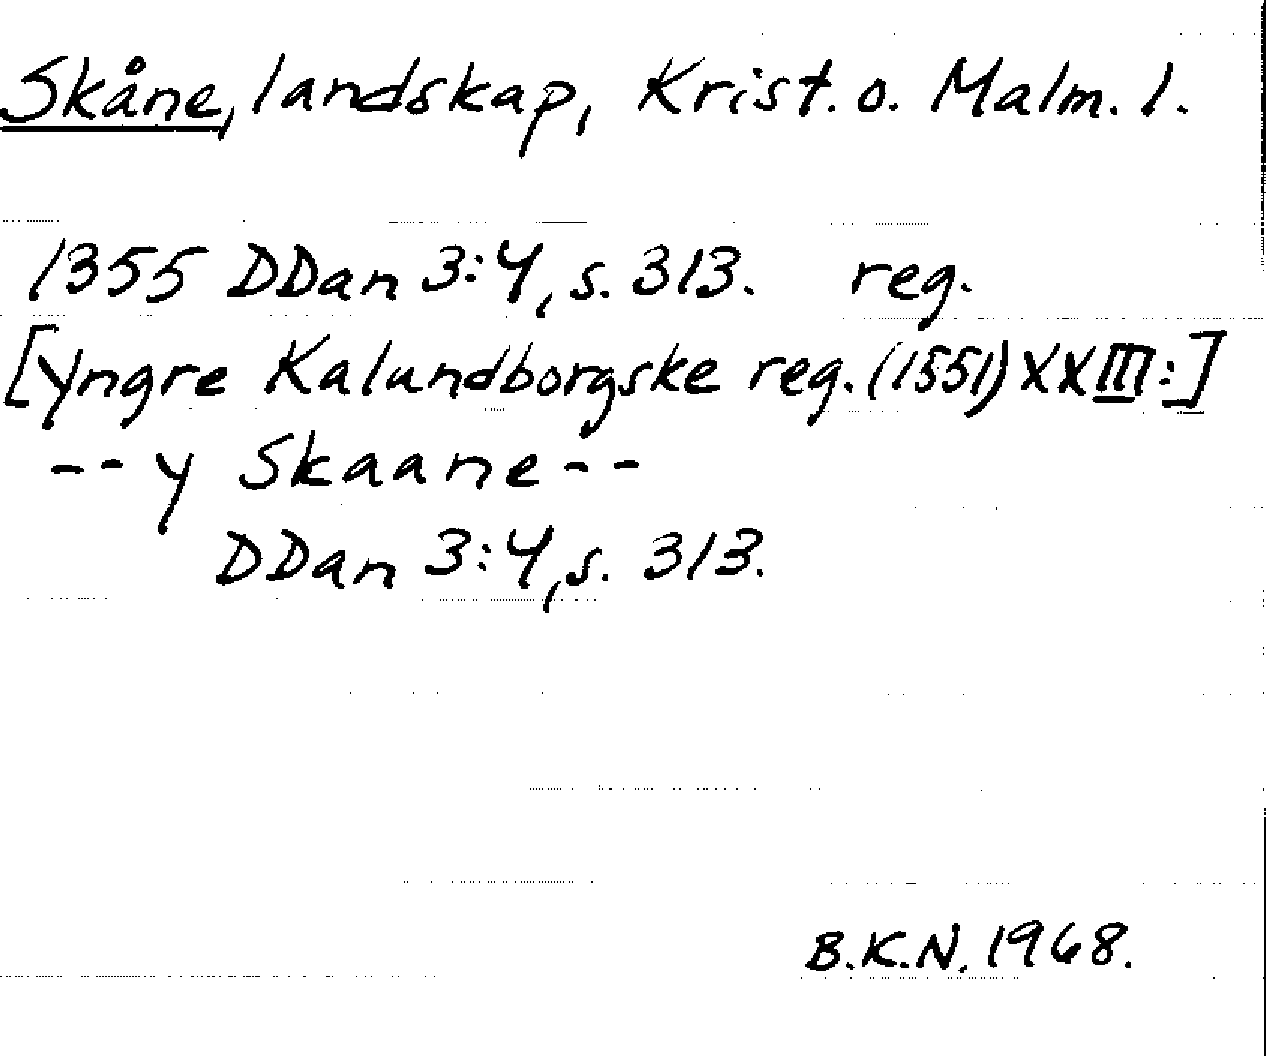 Skåne, landskap, Krist. o. Malm. l.
1355 DDan 3:4, s. 313. reg.
[Yngre Kalundborgske reg. (1551) XXIII:]
-- y Skaane --
DDan 3:4, s. 313.
B.K.N. 1968.